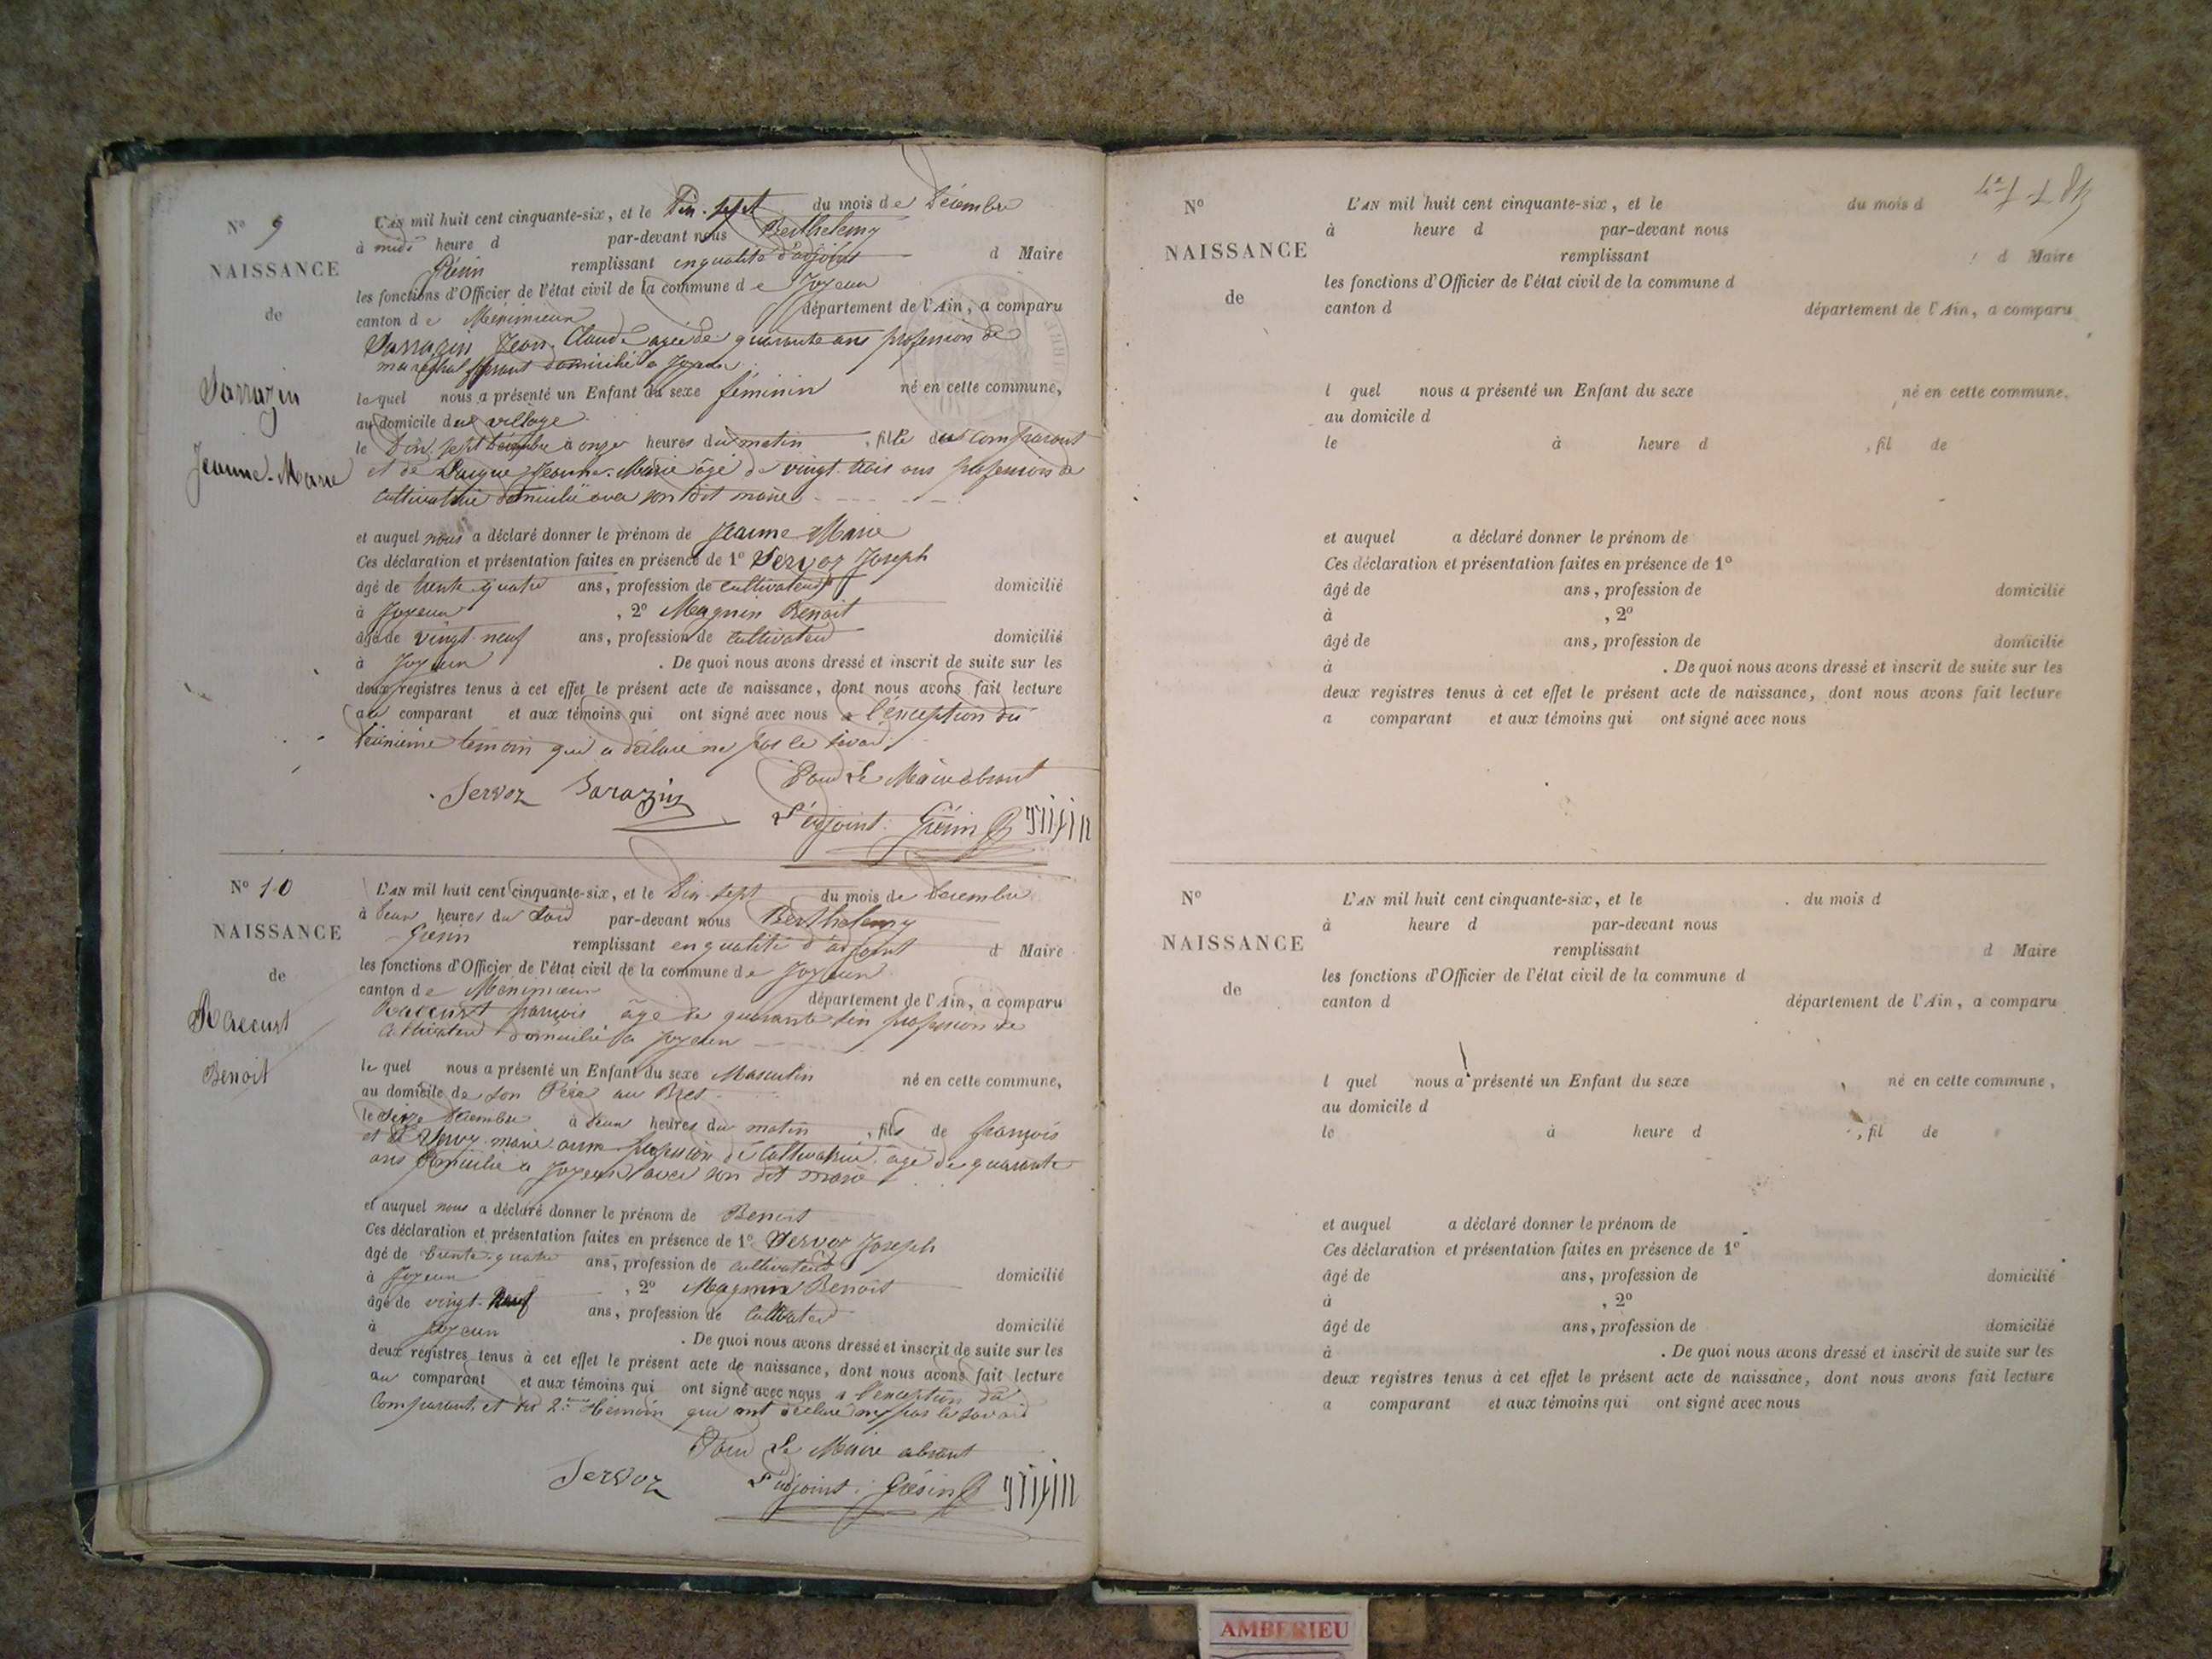 N° 9
NAISSANCE
de
Sarrazin
Jeanne-Marie
L'AN mil huit cent cinquante-six, et le Dix-sept du mois de Décembre
à midi heure d par-devant nous Berthelemy
Grésin remplissant en qualité d'adjoint d Maire
les fonctions d'Officier de l'état civil de la commune de Joyeux
canton de Meximieux département de l'Ain, a comparu
Sarrazin Jean Claude agée de quarante ans profession de
maréchal ferrant domicilié a Joyeux
lequel nous a présenté un Enfant du sexe féminin né en cette commune,
au domicile du village
le Dix sept Décembre à onze heures du matin , fille du comparant
et de Jeanne-Marie âgé de vingt trois ans profession de
cultivatrice domicilié avec son dit marie
et auquel nous a déclaré donner le prénom de Jeanne Marie
Ces déclaration et présentation faites en présence de 1° Servoz Joseph
âgé de trente quatre ans, profession de cultivateur domicilié
à Joyeux , 2° Magnin Benoit
âgé de vingt-neuf ans, profession de cultivateur domicilié
à Joyeux . De quoi nous avons dressé et inscrit de suite sur les
deux registres tenus à cet effet le présent acte de naissance, dont nous avons fait lecture
au comparant et aux témoins qui ont signé avec nous a l'exception du
témoin qui a déclaré ne pas le savoir
Pour Le Maire absent
Servoz Sarazin
L'adjoint: Grésin B
N° 10
NAISSANCE
de
Raccurt
Benoit
L'AN mil huit cent cinquante-six, et le Dix-sept du mois de Decembre
à deux heures du Soir par-devant nous Berthelemy
Grésin remplissant en qualité d'adjoint d Maire
les fonctions d'Officier de l'état civil de la commune de Joyeux
canton de Meximieux département de l'Ain, a comparu
Raccurt françois âgé de quarante six profession de
cultivateur domicilié a Joyeux
lequel nous a présenté un Enfant du sexe Masculin né en cette commune,
au domicile de son Père au Bret
le seize Décembre à deux heures du matin , fils de françois
et de marie anne profession de cultivatrice âgé de quarante
ans domicilié a Joyeux avec son dit marie
et auquel nous a déclaré donner le prénom de Benoit
Ces déclaration et présentation faites en présence de 1° Servoz Joseph
âgé de trente-quatre ans, profession de cultivateur domicilié
à Joyeux , 2° Magnin Benoit
âgé de vingt-neuf ans, profession de cultivateur domicilié
à Joyeux . De quoi nous avons dressé et inscrit de suite sur les
deux registres tenus à cet effet le présent acte de naissance, dont nous avons fait lecture
au comparant et aux témoins qui ont signé avec nous a l'exception du
Comparant et du 2me témoin qui ont déclaré ne pas le savoir
Pour Le Maire absent
Servoz L'adjoint: Grésin B
N°
NAISSANCE
de
L'AN mil huit cent cinquante-six, et le du mois d
à heure d par-devant nous
remplissant d Maire
les fonctions d'Officier de l'état civil de la commune d
canton d département de l'Ain, a comparu
l quel nous a présenté un Enfant du sexe né en cette commune,
au domicile d
le à heure d , fil de
et auquel a déclaré donner le prénom de
Ces déclaration et présentation faites en présence de 1°
âgé de ans, profession de domicilié
à , 2°
âgé de ans, profession de domicilié
à . De quoi nous avons dressé et inscrit de suite sur les
deux registres tenus à cet effet le présent acte de naissance, dont nous avons fait lecture
a comparant et aux témoins qui ont signé avec nous
N°
NAISSANCE
de
L'AN mil huit cent cinquante-six, et le du mois d
à heure d par-devant nous
remplissant d Maire
les fonctions d'Officier de l'état civil de la commune d
canton d département de l'Ain, a comparu
l quel nous a présenté un Enfant du sexe né en cette commune,
au domicile d
le à heure d , fil de
et auquel a déclaré donner le prénom de
Ces déclaration et présentation faites en présence de 1°
âgé de ans, profession de domicilié
à , 2°
âgé de ans, profession de domicilié
à . De quoi nous avons dressé et inscrit de suite sur les
deux registres tenus à cet effet le présent acte de naissance, dont nous avons fait lecture
a comparant et aux témoins qui ont signé avec nous
AMBERIEU